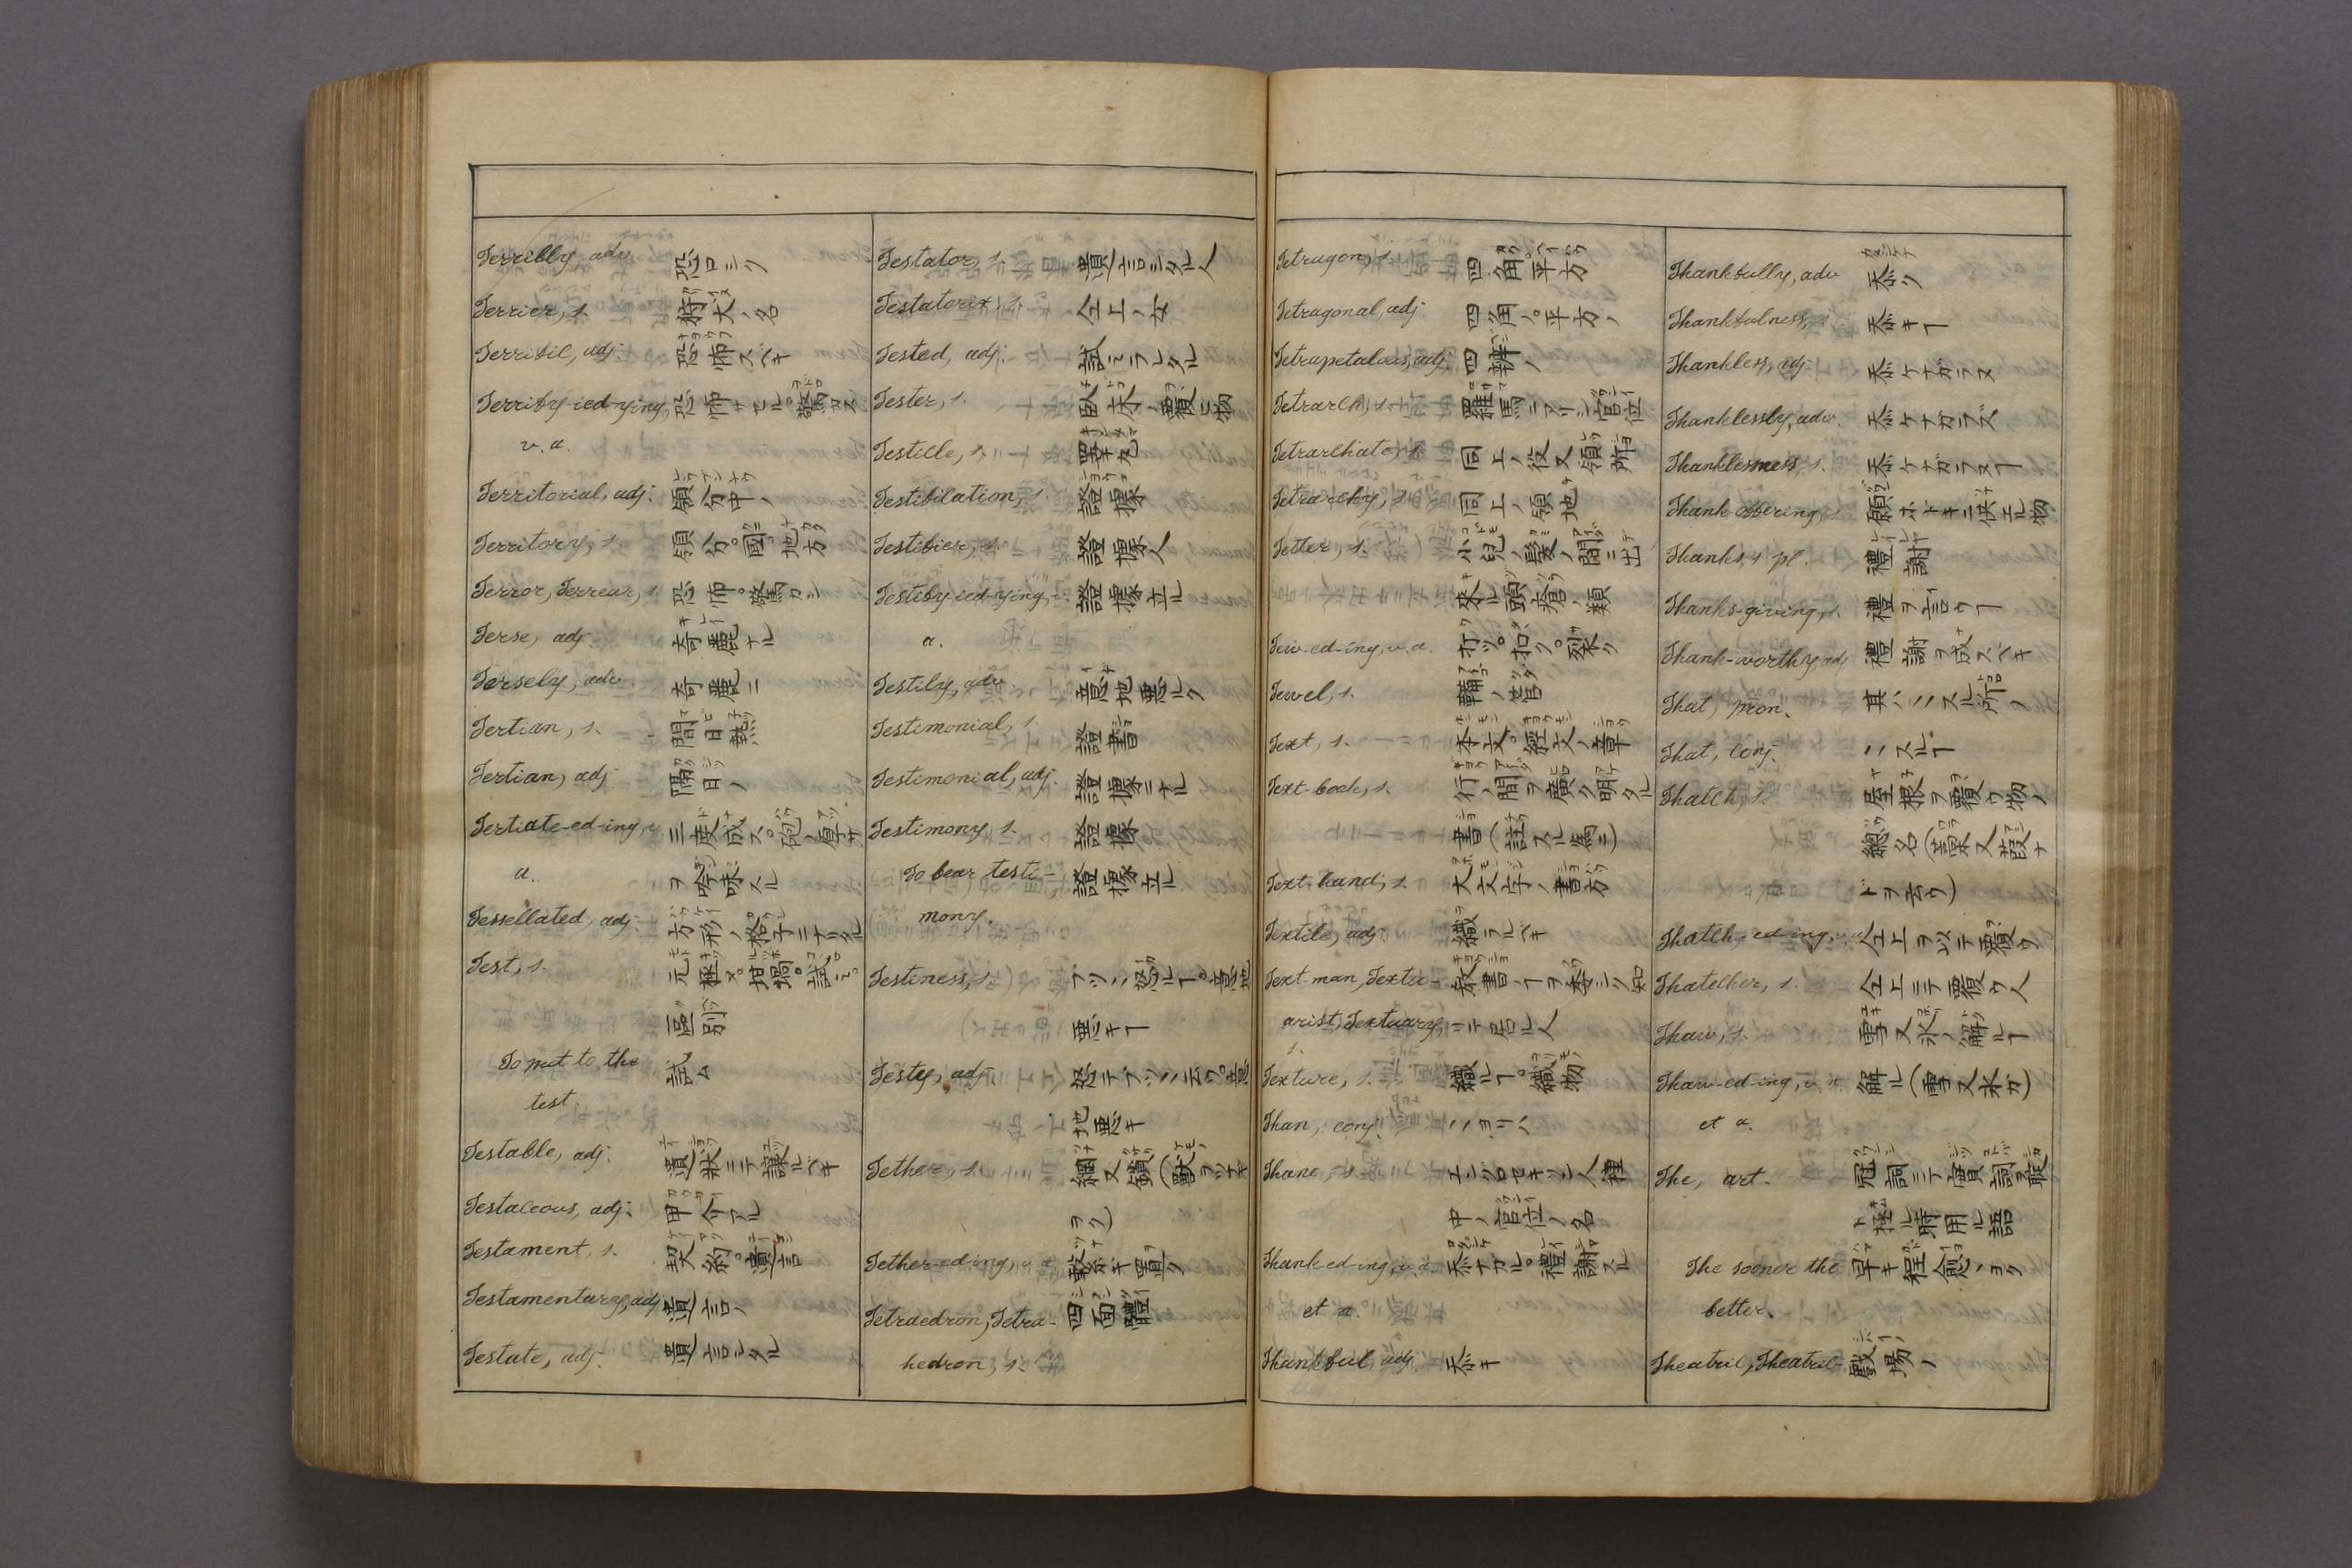 Terribly, adv. 恐ロシク
Terrier, s. 狩犬ノ名
Terrific, adj. 恐怖スベキ
Terrify-ied-ying, 恐怖サセル。驚カス
v. a.
Territorial, adj. 領分中ノ
Territory, s. 領分。國。地方
Terror, Terreur, s. 恐怖。驚カシ
Terse, adj. 奇麗ナル
Tersely, adv. 奇麗ニ
Tertian, s. 間日熱
Tertian, adj. 隔日ノ
Tertiate-ed-ing, v. 三度成ス。砲ノ厚サ
a. ヲ吟味スル
Tessellated, adj. 方形ノ格子ニナリタル
Test, s. 元極メ。坩堝。試ミ。
區別
To put to the 試ム
test.
Testable, adj. 遺狀ニテ譲ルベキ
Testaceous, adj. 甲介アル
Testament, s. 契約。遺言
Testamentary, adj. 遺言ノ
Testate, adj. 遺言シタル
Testator, s. 遺言シタル人
Testatorix, s. 仝上ノ女
Tested, adj. 試ミラレタル
Tester, s. 臥床ノ覆ヒ物
Testicle, s. 睪丸
Testification, s. 證據
Testifier, s. 證據人
Testify-ied-ying, v. 證據立ル
a.
Testily, adv. 意地悪ルク
Testimonial, s. 證書
Testimonial, adj. 證據ニナル
Testimony, s. 證據
To bear testi- 證據立ル
mony.
Testiness, s. ブツ〻怒ルヿ。意地
悪キヿ
Testy, adj. 怒テブツ〻云ウ。意
地悪キ
Tether, s. 綱又鎖(獸ヲツナギ
ヲク)
Tether-ed-ing, v. a. 繫ギ置ク
Tetraedron, Tetra- 四面體
hedron, s.
Tetragon, s. 四角。平方
Tetragonal, adj. 四角ノ。平方ノ
Tetrapetalous, adj. 四辨ノ
Tetrarch, s. 羅馬ニアリシ官位
Tetrarchate, s. 同上ノ役又領所
Tetrarchy, s. 同上ノ領地
Tetter, s. 小兒ノ髪ノ間ニ出
來ル頭瘡ノ類
Tew-ed-ing, v. a. 打ツ。扣ク。裂ク
Tewel, s. 鞴ノ管
Text, s. 本文。經文ノ章
Text-book, s. 行ノ間ヲ廣ク明タル
書(註スル爲ニ)
Text-hand, s. 大文字ノ書方
Textile, adj. 織ラルベキ
Text-man, Textu- 教書ノヿヲ委シク知
arist, Textuary, リテ居ル人
s.
Texture, s. 織ルヿ。織物
Than, conj. 〻ヨリハ
Thane, s. エンゲロセキソン人種
中ノ官位ノ名
Thank-ed-ing, v. n. 忝ナガル。禮謝スル
et a.
Thankful, adj. 忝キ
Thankfully, adv. 忝ク
Thankfulness, s. 忝キヿ
Thankless, adj. 忝ケナガラヌ
Thanklessly, adv. 忝ケナガラズ
Thanklessness, s. 忝ケナガラヌヿ
Thank offering, s. 願ホドキニ供エル物
Thanks, s. pl. 禮謝
Thanks-giving, s. 禮ヲ言ウヿ
Thank-worthy, adj. 禮謝ヲ成スベキ
That, pron. 其ハ〻スル所ノ
That, conj. 〻スルヿ
Thatch, s. 屋根ヲ覆ウ物ノ
總名(藁又葭ナ
ドヲ云ウ)
Thatch-ed-ing, v. a. 仝上ヲ以テ覆ウ
Thatcher, s. 仝上ニテ覆ウ人
Thaw, s. 雪又氷ノ解ルヿ
Thaw-ed-ing, v. n. 解ル(雪又氷ガ)
et a.
The, art. 冠詞ニテ實詞ヲ碇
ト極ル時用ル語
The sooner the 早キ程愈〻ヨク
better.
Theatric, Theatric- 戲場ノ